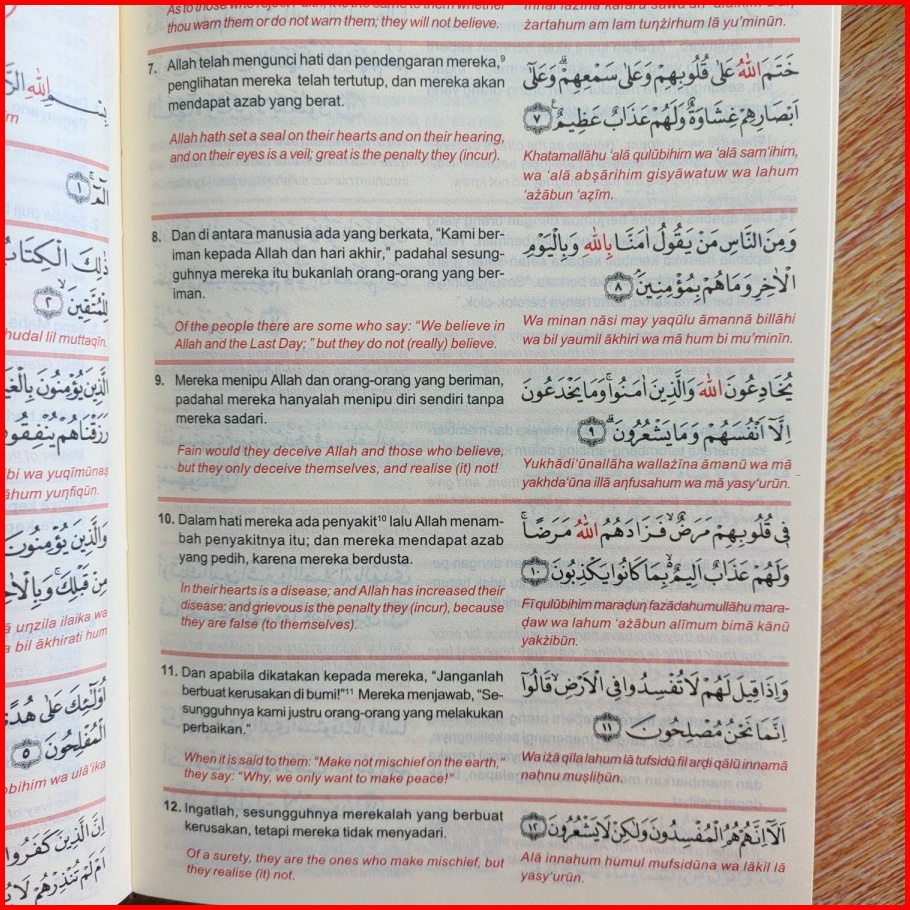 الٓمّٓ ۚ ١
ذٰلِكَ الْكِتَابُ
لِلْمُتَّقِينَ ۙ ٢
hudal lil muttaqīn.
الَّذِينَ يُؤْمِنُونَ
رَزَقْنَاهُمْ يُنْفِقُونَ
bi wa yuqīmūnaṣ
āhum yunfiqūn.
وَالَّذِينَ يُؤْمِنُونَ
مِنْ قَبْلِكَ ۚ
ā unzila ilaika wa
a bil ākhirati hum
اُولٰۤئِكَ عَلٰى هُدًى
الْمُفْلِحُونَ ٥
obihim wa ulā'ika
اِنَّ الَّذِينَ كَفَرُوا
اَمْ لَمْ تُنْذِرْهُمْ
As to those who the same to them whether
thou warn them or do not warn them; they will not believe.
żartahum am lam tunżirhum lā yu'minūn.
7. Allah telah mengunci hati dan pendengaran mereka,⁹
penglihatan mereka telah tertutup, dan mereka akan
mendapat azab yang berat.
Allah hath set a seal on their hearts and on their hearing,
and on their eyes is a veil; great is the penalty they (incur).
خَتَمَ اللهُ عَلٰى قُلُوبِهِمْ وَعَلٰى سَمْعِهِمْ ۗ وَعَلٰٓى
اَبْصَارِهِمْ غِشَاوَةٌ وَلَهُمْ عَذَابٌ عَظِيمٌ ࣖ ٧
Khatamallāhu ‘alā qulūbihim wa ‘alā sam‘ihim,
wa ‘alā abṣārihim gisyāwatuw wa lahum
‘ażābun ‘aẓīm.
8. Dan di antara manusia ada yang berkata, “Kami ber-
iman kepada Allah dan hari akhir,” padahal sesung-
guhnya mereka itu bukanlah orang-orang yang ber-
iman.
Of the people there are some who say: “We believe in
Allah and the Last Day; ” but they do not (really) believe.
وَمِنَ النَّاسِ مَنْ يَقُولُ اٰمَنَّا بِاللهِ وَبِالْيَوْمِ
الْاٰخِرِ وَمَا هُمْ بِمُؤْمِنِينَ ۘ ٨
Wa minan nāsi may yaqūlu āmannā billāhi
wa bil yaumil ākhiri wa mā hum bi mu’minīn.
9. Mereka menipu Allah dan orang-orang yang beriman,
padahal mereka hanyalah menipu diri sendiri tanpa
mereka sadari.
Fain would they deceive Allah and those who believe,
but they only deceive themselves, and realise (it) not!
يُخَادِعُونَ اللهَ وَالَّذِينَ اٰمَنُوا ۚ وَمَا يَخْدَعُونَ
اِلَّآ اَنْفُسَهُمْ وَمَا يَشْعُرُونَ ۗ ٩
Yukhādi‘ūnallāha wallażīna āmanū wa mā
yakhda‘ūna illā anfusahum wa mā yasy‘urūn.
10. Dalam hati mereka ada penyakit¹⁰ lalu Allah menam-
bah penyakitnya itu; dan mereka mendapat azab
yang pedih, karena mereka berdusta.
In their hearts is a disease; and Allah has increased their
disease; and grievous is the penalty they (incur), because
they are false (to themselves).
فِي قُلُوبِهِمْ مَرَضٌ ۙ فَزَادَهُمُ اللهُ مَرَضًا ۚ
وَلَهُمْ عَذَابٌ اَلِيمٌ ۢ ۙ بِمَا كَانُوا يَكْذِبُونَ ١٠
Fī qulūbihim maraḍun fazādahumullāhu mara-
ḍaw wa lahum ‘ażābun alīmum bimā kānū
yakżibūn.
11. Dan apabila dikatakan kepada mereka, “Janganlah
berbuat kerusakan di bumi!”¹¹ Mereka menjawab, “Se-
sungguhnya kami justru orang-orang yang melakukan
perbaikan.”
When it is said to them: “Make not mischief on the earth,”
they say: “Why, we only want to make peace!”
وَاِذَا قِيلَ لَهُمْ لَا تُفْسِدُوا فِي الْاَرْضِ ۙ قَالُوٓا
اِنَّمَا نَحْنُ مُصْلِحُونَ ١١
Wa iżā qīla lahum lā tufsidū fil arḍi qālū innamā
naḥnu muṣliḥūn.
12. Ingatlah, sesungguhnya merekalah yang berbuat
kerusakan, tetapi mereka tidak menyadari.
Of a surety, they are the ones who make mischief, but
they realise (it) not.
اَلَآ اِنَّهُمْ هُمُ الْمُفْسِدُونَ وَلٰكِنْ لَا يَشْعُرُونَ ١٢
Alā innahum humul mufsidūna wa lākil lā
yasy‘urūn.